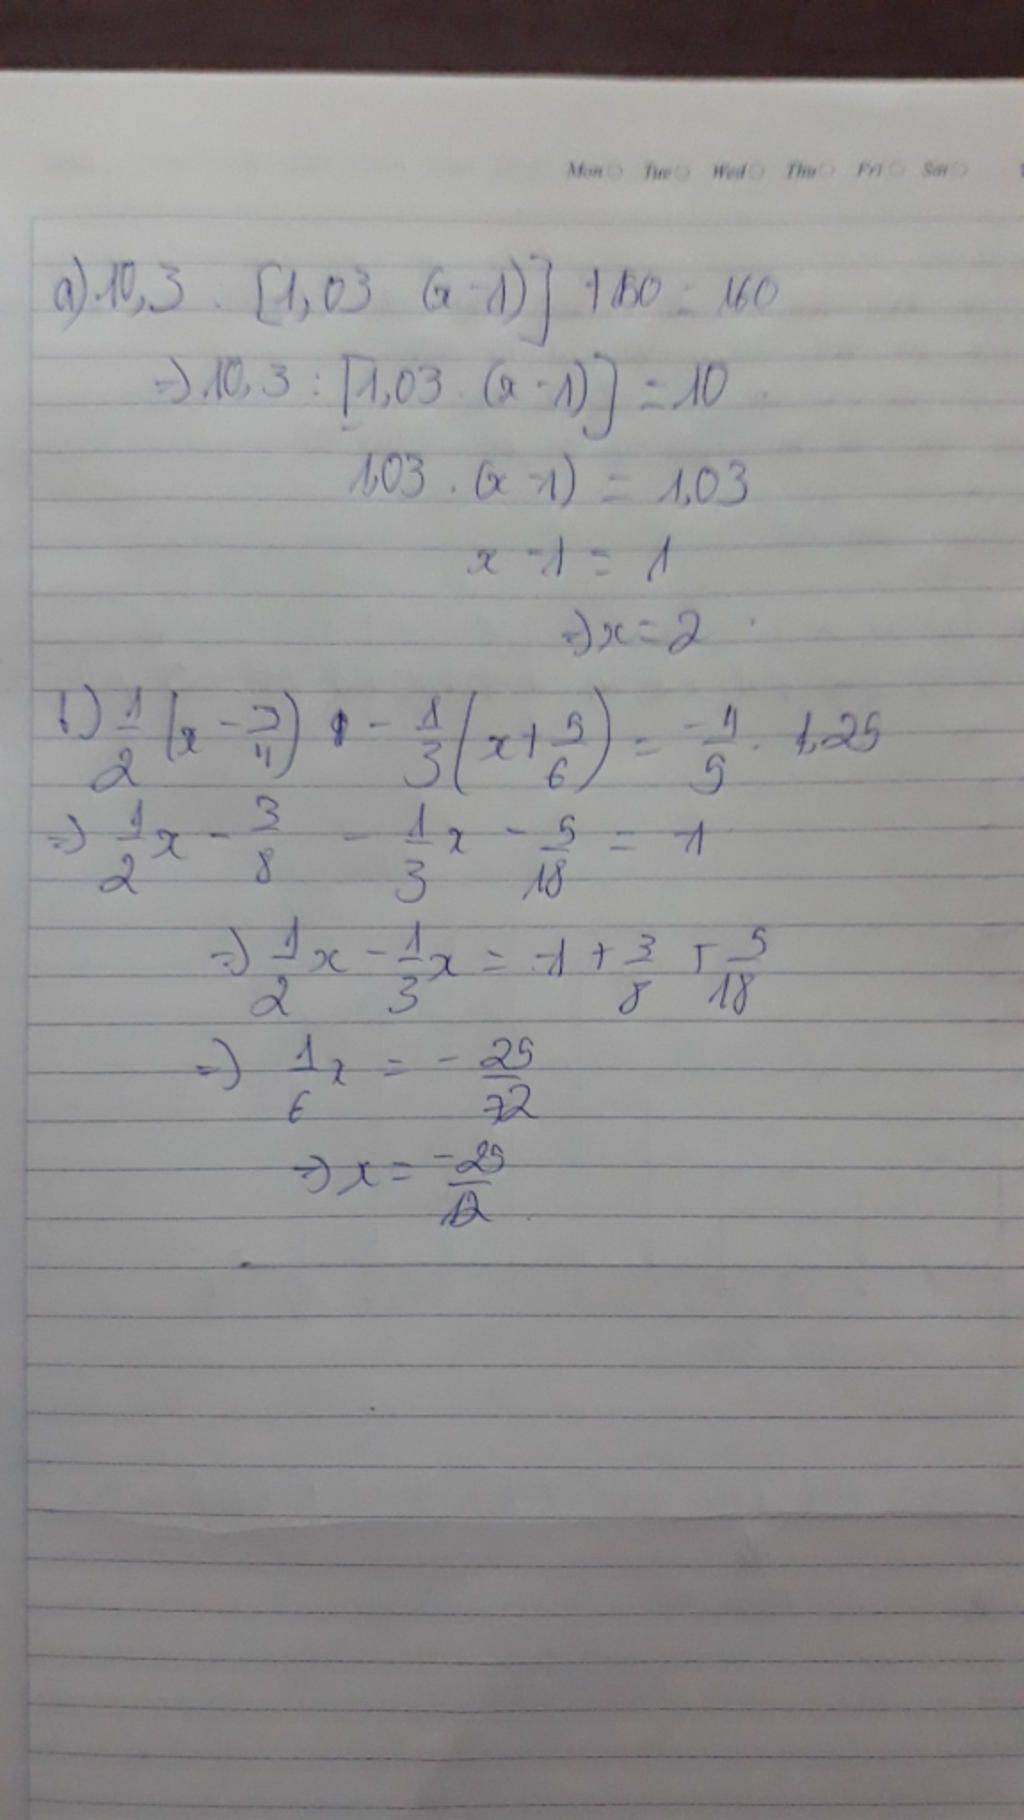 Mon Tue Wed Thu Fri Sat
a) 10,3 : [1,03 (x - 1)] + 150 = 160
=> 10,3 : [1,03 . (x - 1)] = 10
1,03 . (x - 1) = 1,03
x - 1 = 1
=> x = 2
b) 1/2 (x - 3/4) - 1/3 (x + 5/6) = -4/5 . 1,25
=> 1/2 x - 3/8 - 1/3 x - 5/18 = -1
=> 1/2 x - 1/3 x = -1 + 3/8 + 5/18
=> 1/6 x = - 25/72
=> x = -25/12